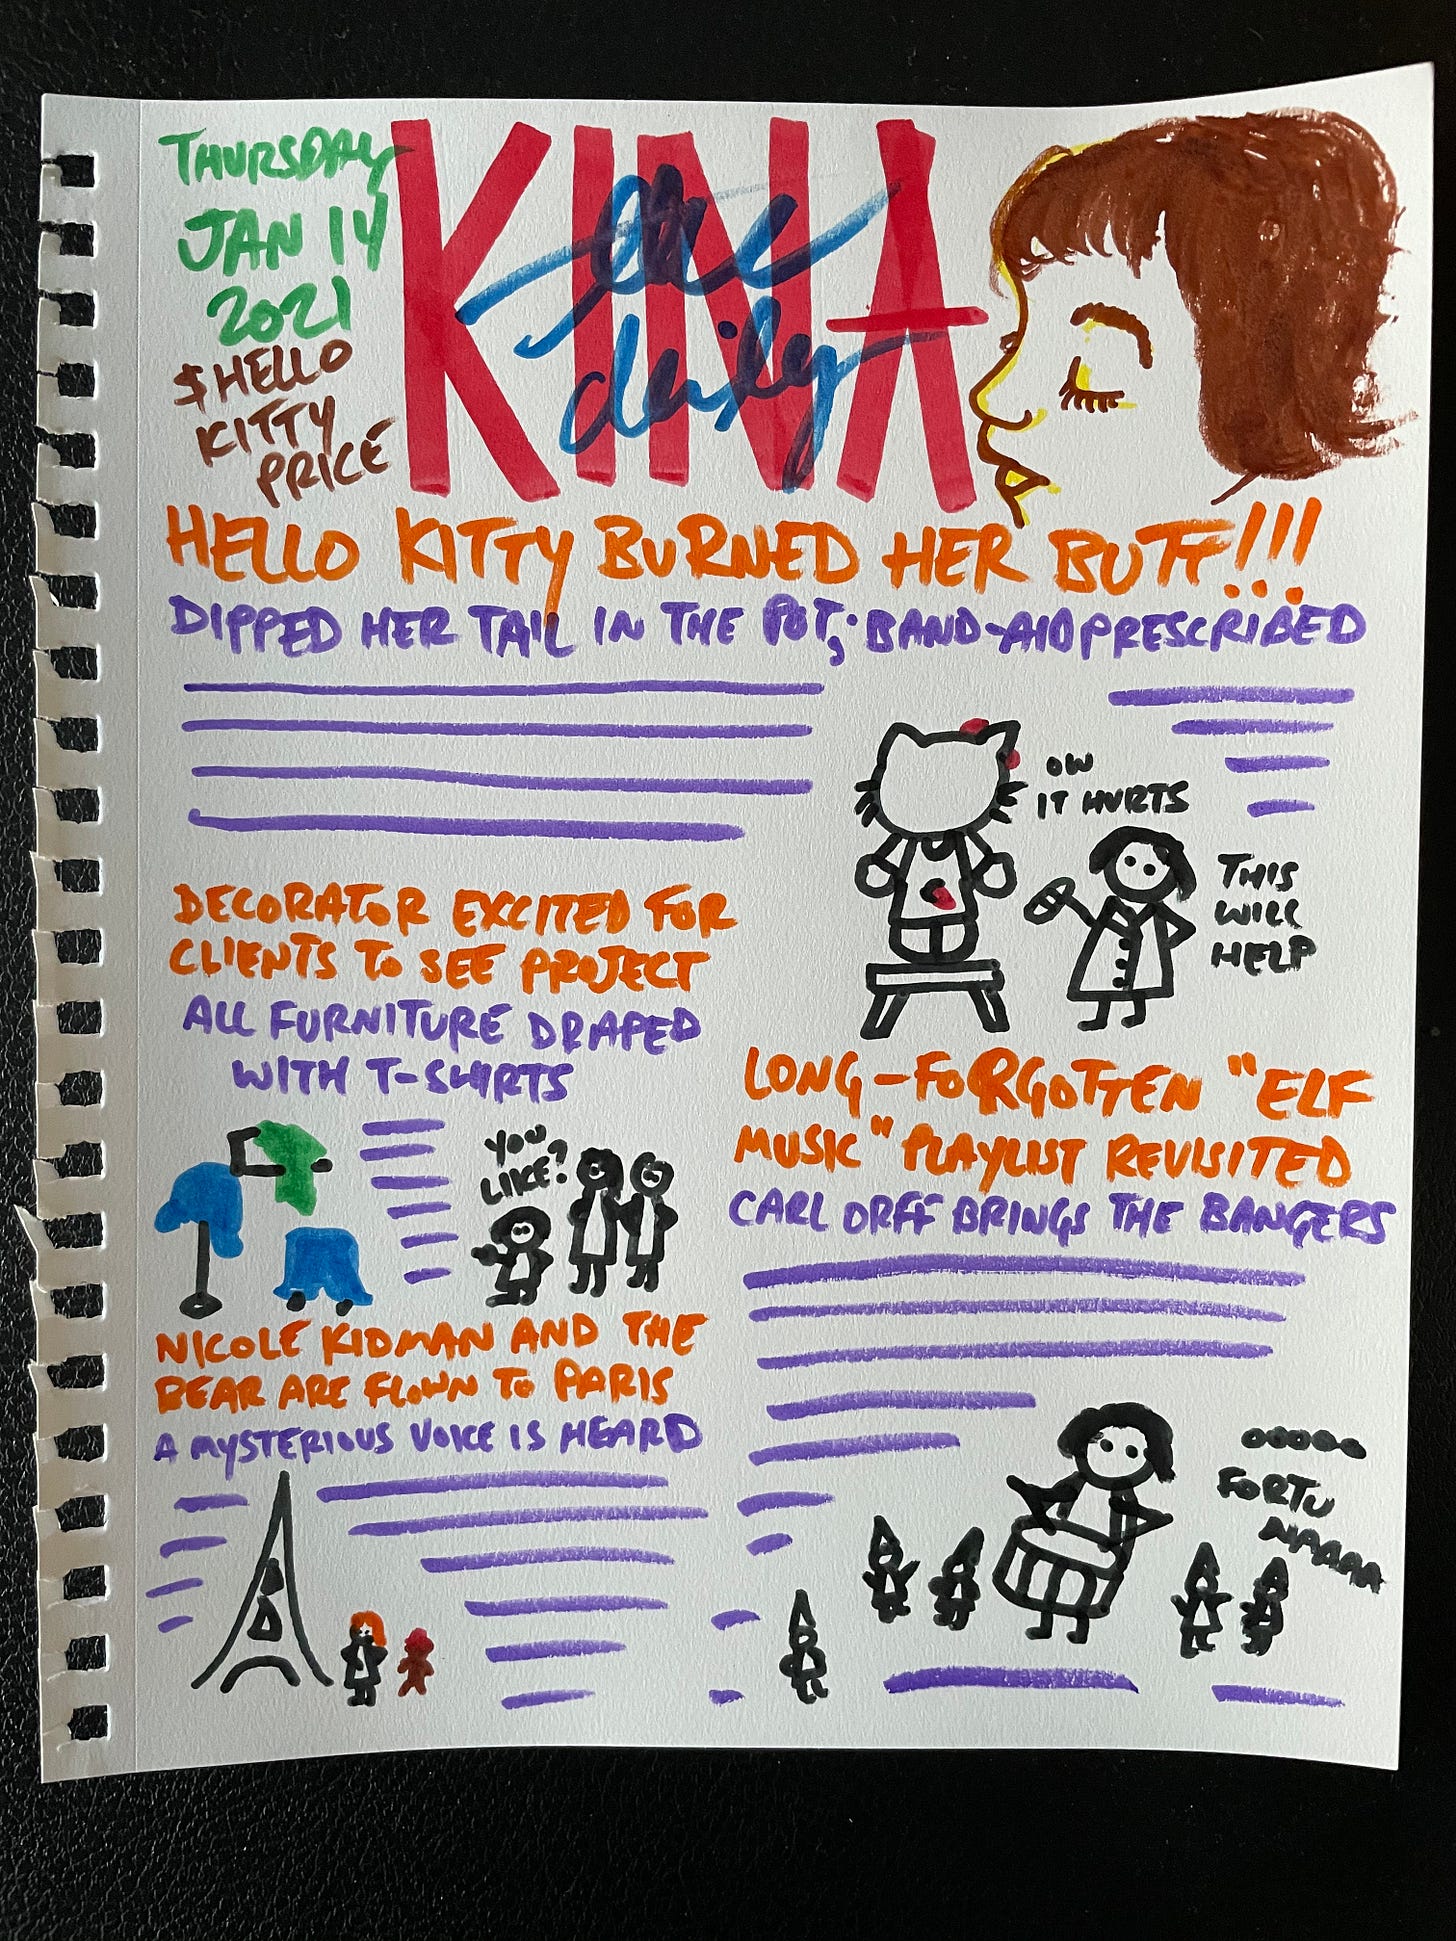 THURSDAY
JAN 14
2021
$HELLO
KITTY
PRICE
KINA
the
daily
HELLO KITTY BURNED HER BUTT!!!
DIPPED HER TAIL IN THE POT; BAND-AID PRESCRIBED
OW
IT HURTS
THIS
WILL
HELP
DECORATOR EXCITED FOR
CLIENTS TO SEE PROJECT
ALL FURNITURE DRAPED
WITH T-SHIRTS
YOU
LIKE?
LONG-FORGOTTEN "ELF
MUSIC" PLAYLIST REVISITED
CARL ORFF BRINGS THE BANGERS
OOOOO
FORTU
NAAAA
NICOLE KIDMAN AND THE
BEAR ARE FLOWN TO PARIS
A MYSTERIOUS VOICE IS HEARD